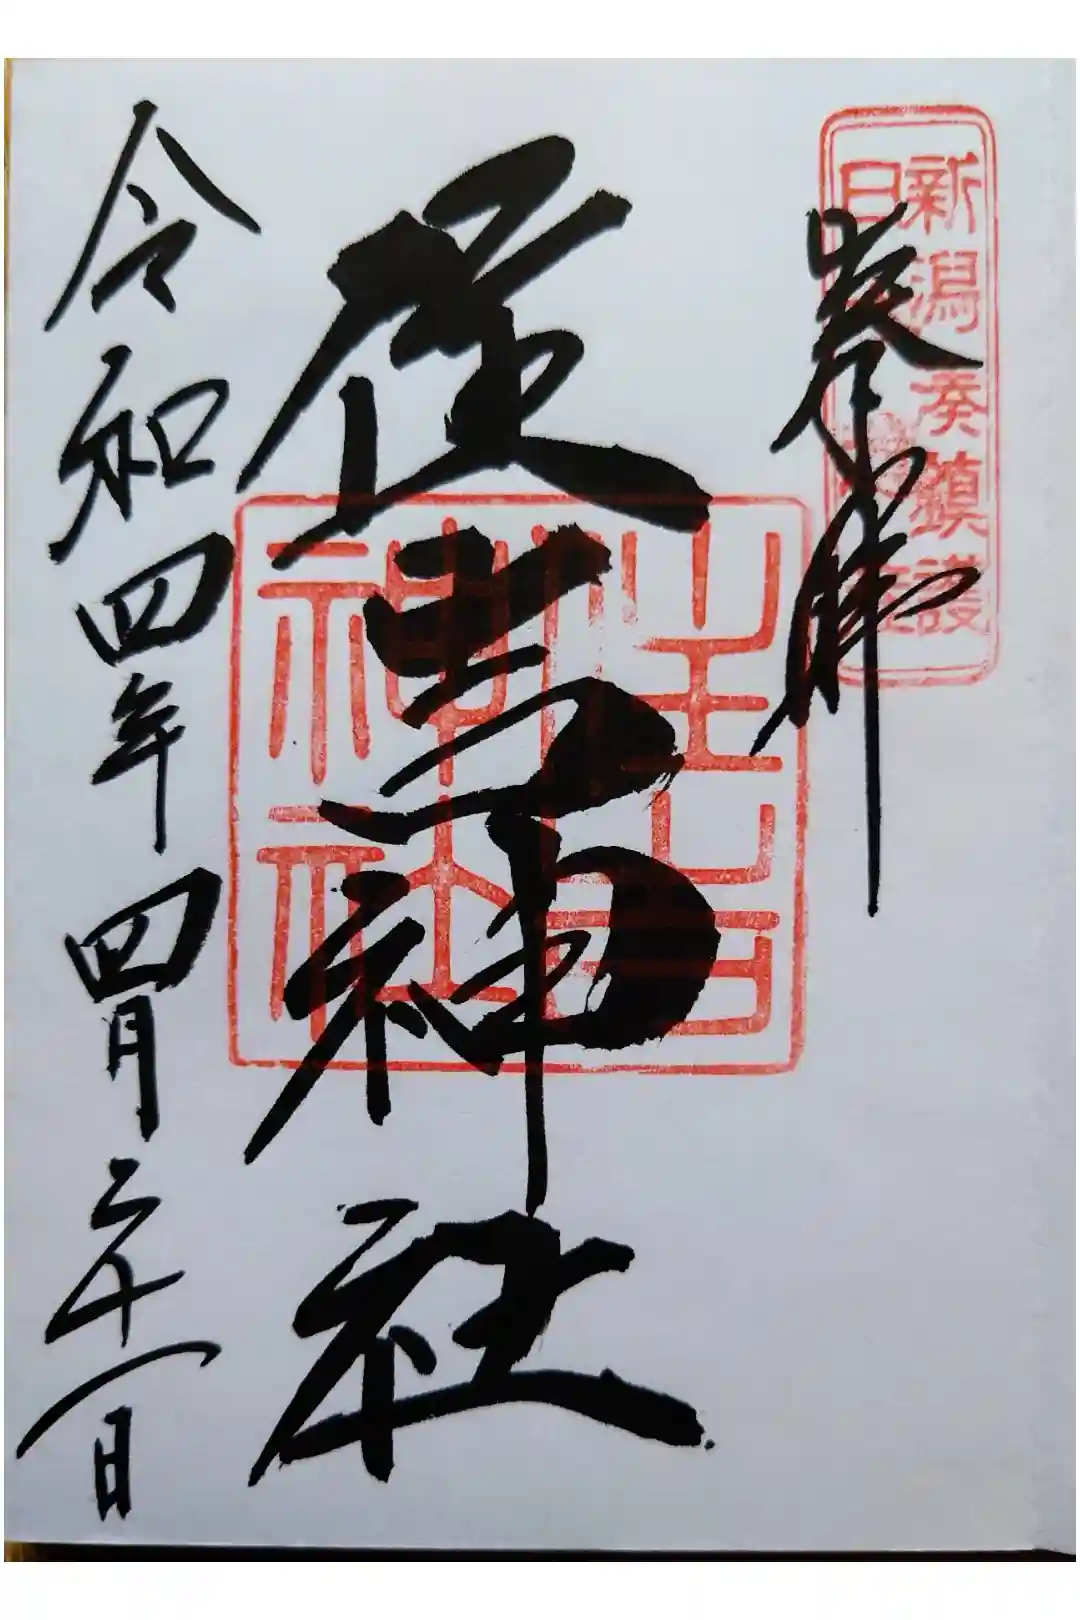 奉拝
新潟湊鎮護
日
住吉神社
住吉
神社
令和四年四月二十一日